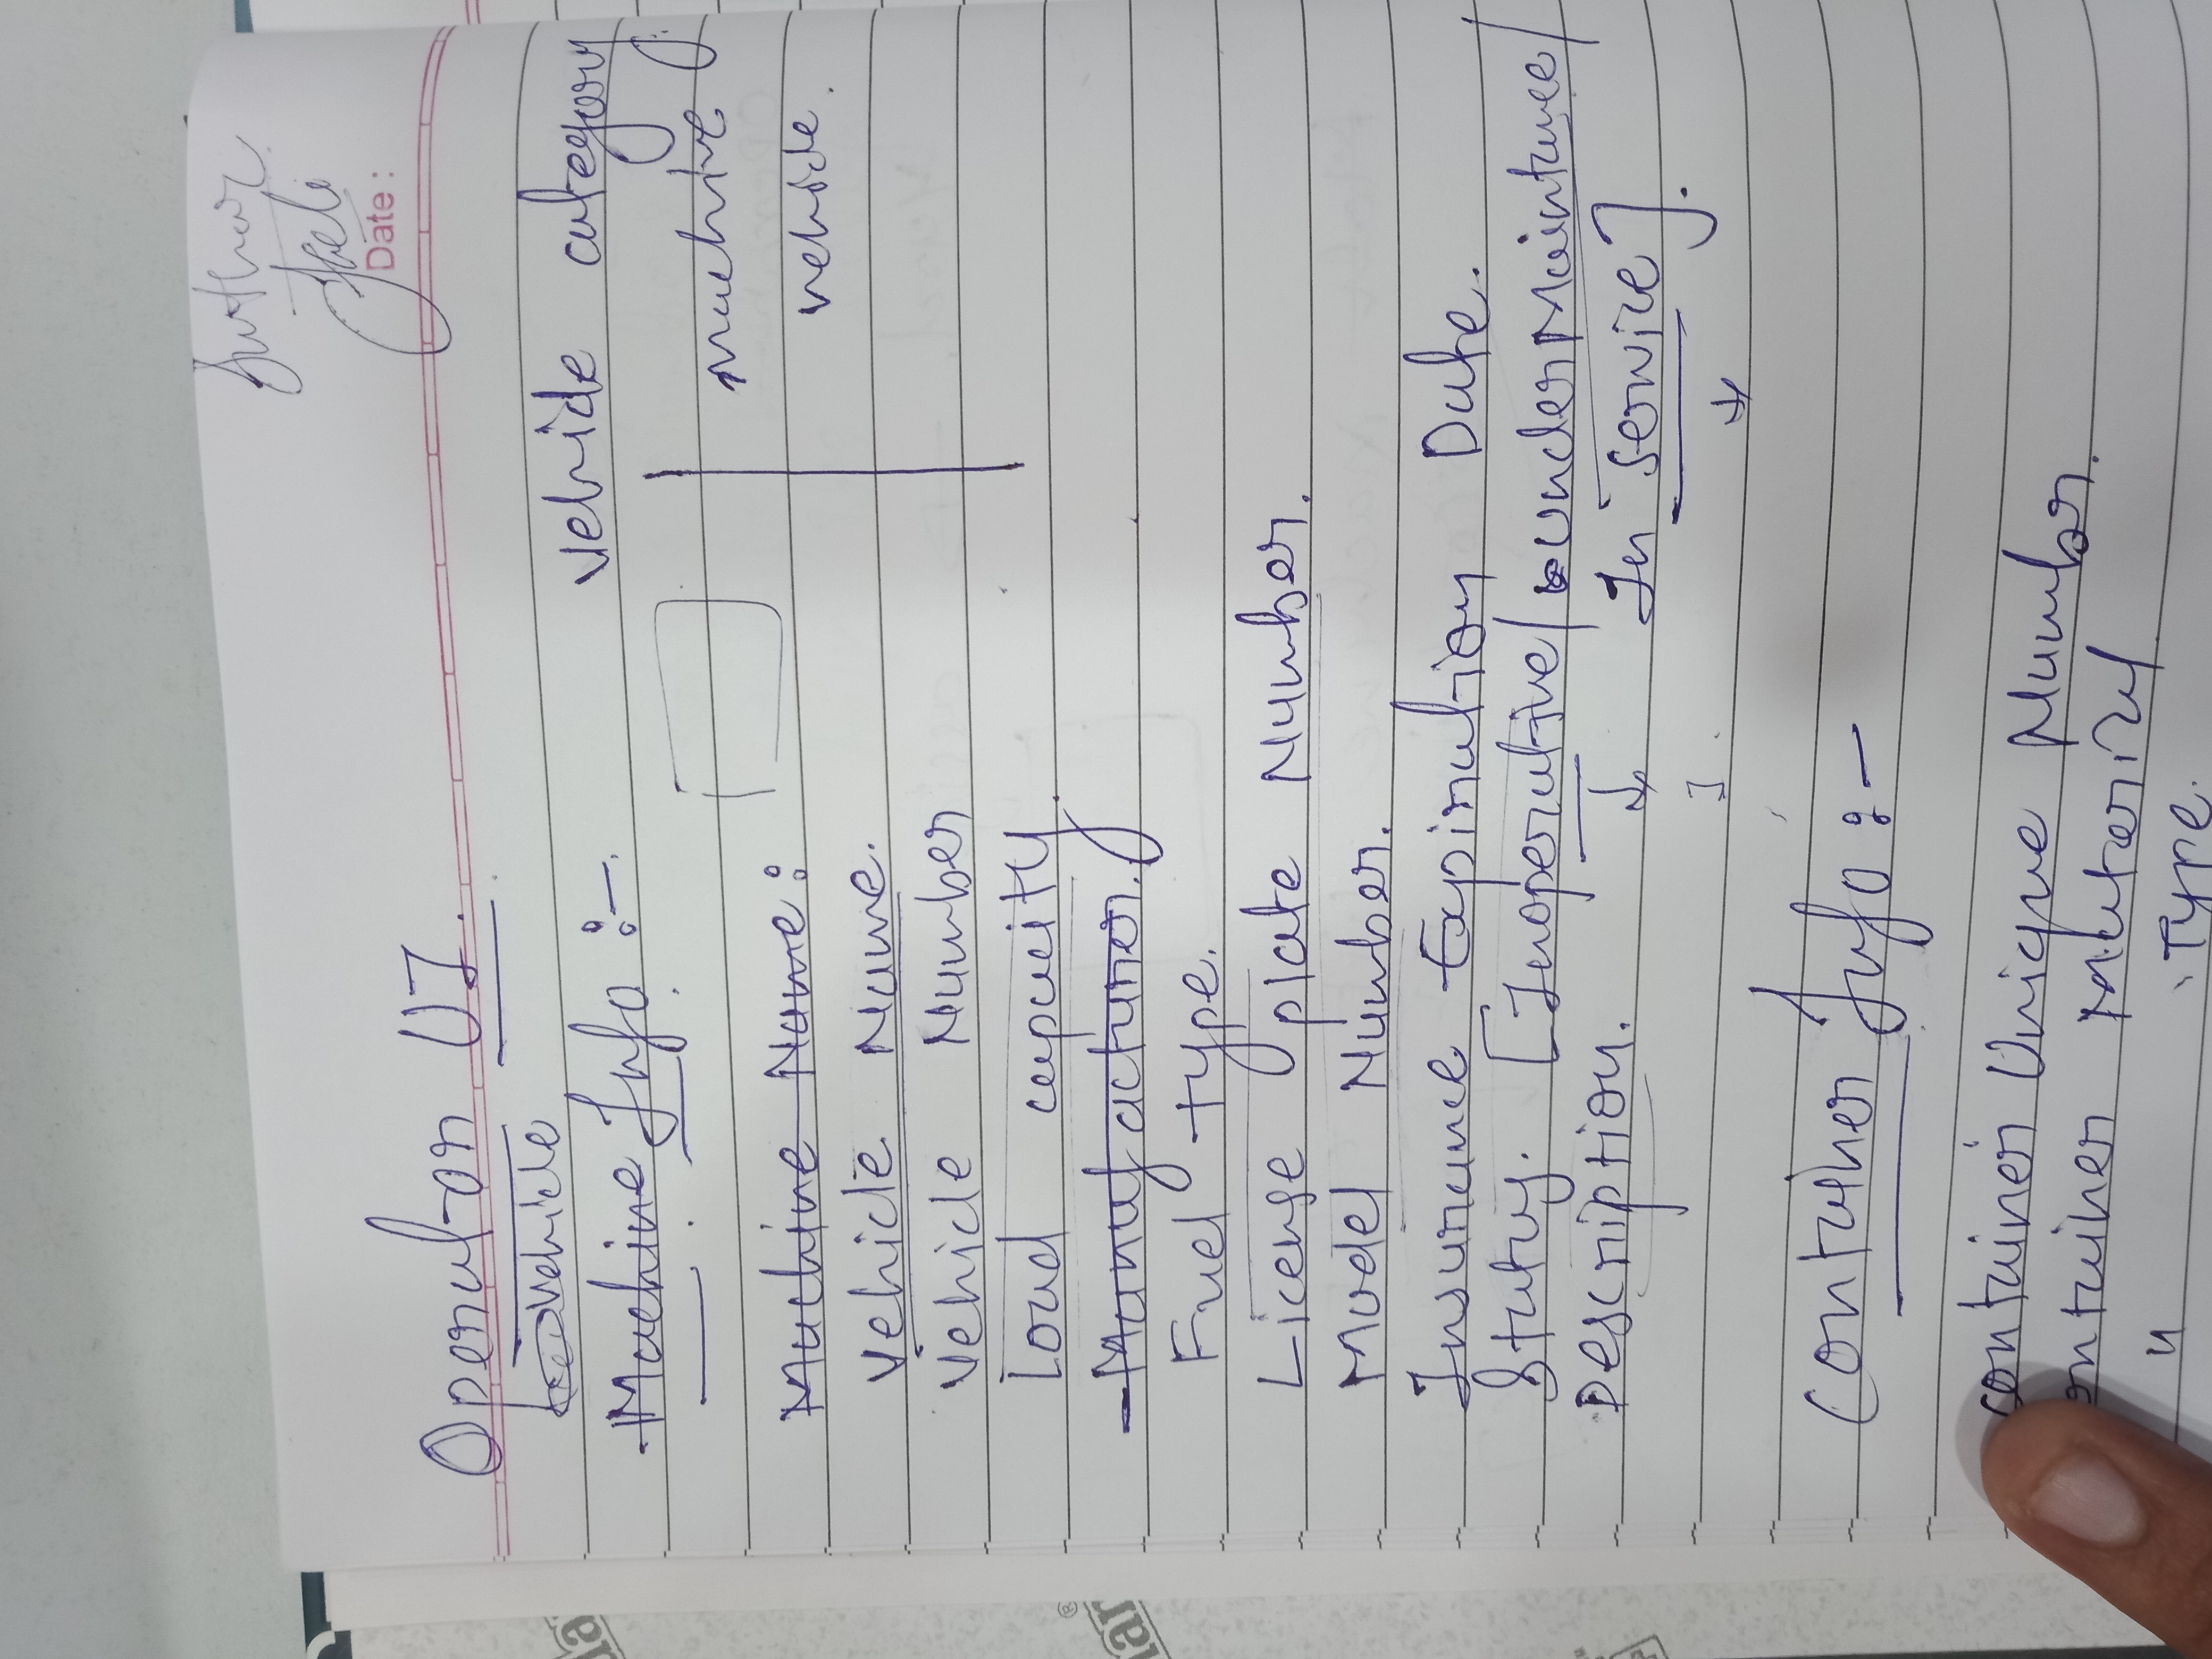 Date:
Operator UI.
Vehicle
Machine Info :-
Vehicle category
machine
vehicle.
Machine Name:
Vehicle Name.
Vehicle Number
Load capacity
Manufacturer.
Fuel type.
License plate Number.
Model Number.
Insurance Expiration Date.
[Inoperative/ under Maintance/
Description.
In service].
Container Info :-
Container Unique Number.
Container Material
" Type.